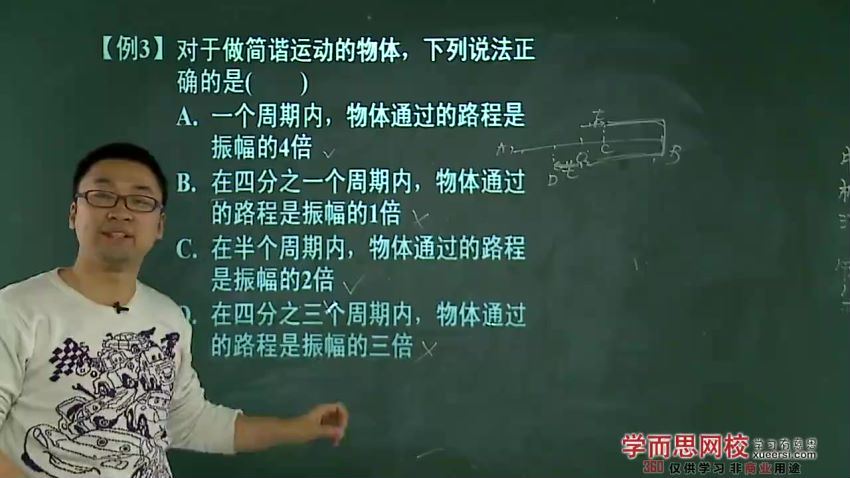 【例3】对于做简谐运动的物体，下列说法正
确的是(    )
A. 一个周期内，物体通过的路程是
振幅的4倍 ✓
B. 在四分之一个周期内，物体通过
的路程是振幅的1倍 ×
C. 在半个周期内，物体通过的路程
是振幅的2倍 ✓
D. 在四分之三个周期内，物体通过
的路程是振幅的三倍 ×
A
D
C
B
学而思网校 学习有意思
xueersi.com
360 仅供学习 非商业用途